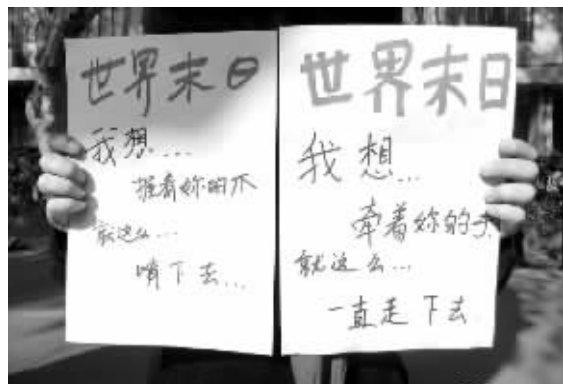 世界末日
我想...
握着妳的爪
就这么...
啃下去...
世界末日
我想...
牵着妳的手
就这么...
一直走下去